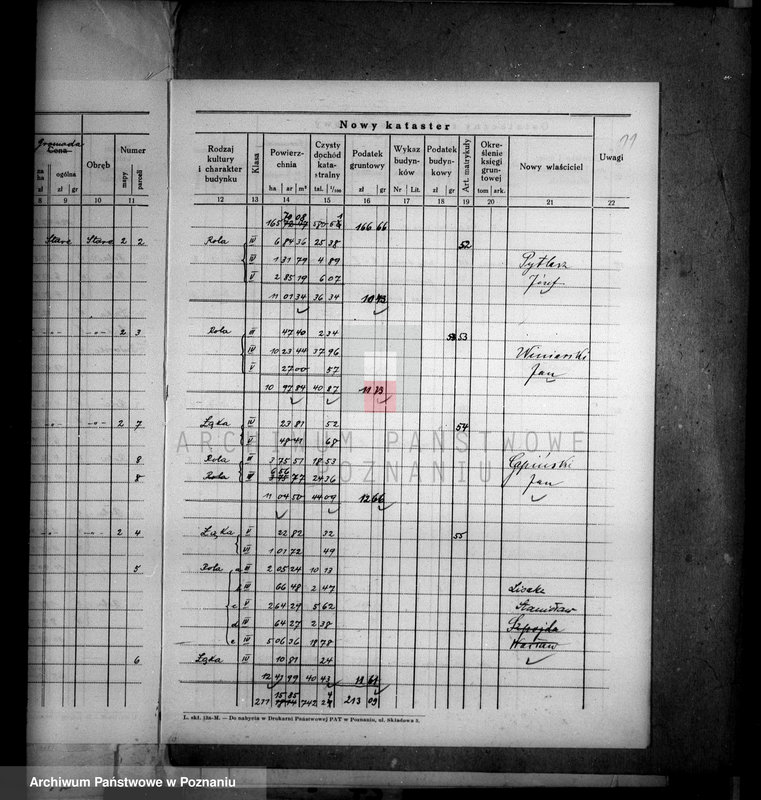 Nowy kataster
Gromada
Cena
Obręb
Numer
mapy
parceli
Rodzaj kultury i charakter budynku
Klasa
Powierzchnia
Czysty dochód katastralny
Podatek gruntowy
Wykaz budynków
Podatek budynkowy
Art. matrykuły
Określenie księgi gruntowej
Nowy właściciel
Uwagi
zł ogólna zł gr
ha ar m² tal. 1/100 zł gr Nr Lit. zł gr tom ark.
8 9 10 11 12 13 14 15 16 17 18 19 20 21 22
166 66
Stare Stare 2 2 Rola III 6 84 36 25 38 52
IV 1 31 79 4 89 Pytlarz
V 2 85 19 6 07 Józef
11 01 34 36 34
-"- -"- 2 3 Rola III 47 40 2 34 53
IV 10 23 44 37 96 Winiarski
V 27 00 57 Jan
10 97 84 40 87 11 73
-"- -"- 2 7 Łąka IV 23 81 52 54
V 48 41 68
8 Rola III 3 75 51 18 53 Gapiński
8 Rola 6 56 77 24 36 Jan
11 04 50 44 09 12 66
-"- -"- 2 4 Łąka V 22 82 32 55
VI 1 01 72 49
5 Rola a III 2 05 24 10 13
b 66 48 2 47
c V 2 64 29 5 62 Stanisław
d IV 64 27 2 38
e 5 06 36 18 78
6 Łąka 10 81 24
12 41 99 40 43
15 85
277 742 213 09
L. skł. 13a-M. — Do nabycia w Drukarni Państwowej PAT w Poznaniu, ul. Składowa 3.
ARCHIWUM PAŃSTWOWE
POZNANIU
Archiwum Państwowe w Poznaniu